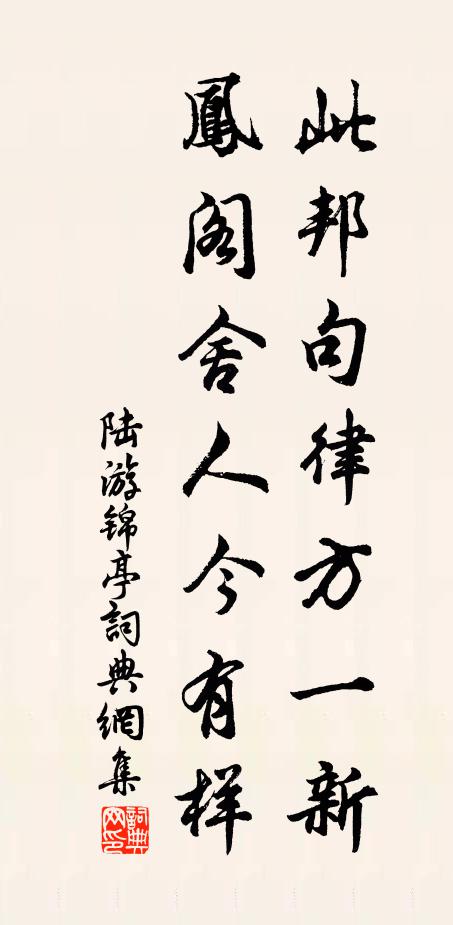 此邦句律方一新
鳳阁舍人今有样
陆游锦亭詞典網集
詞典
网印